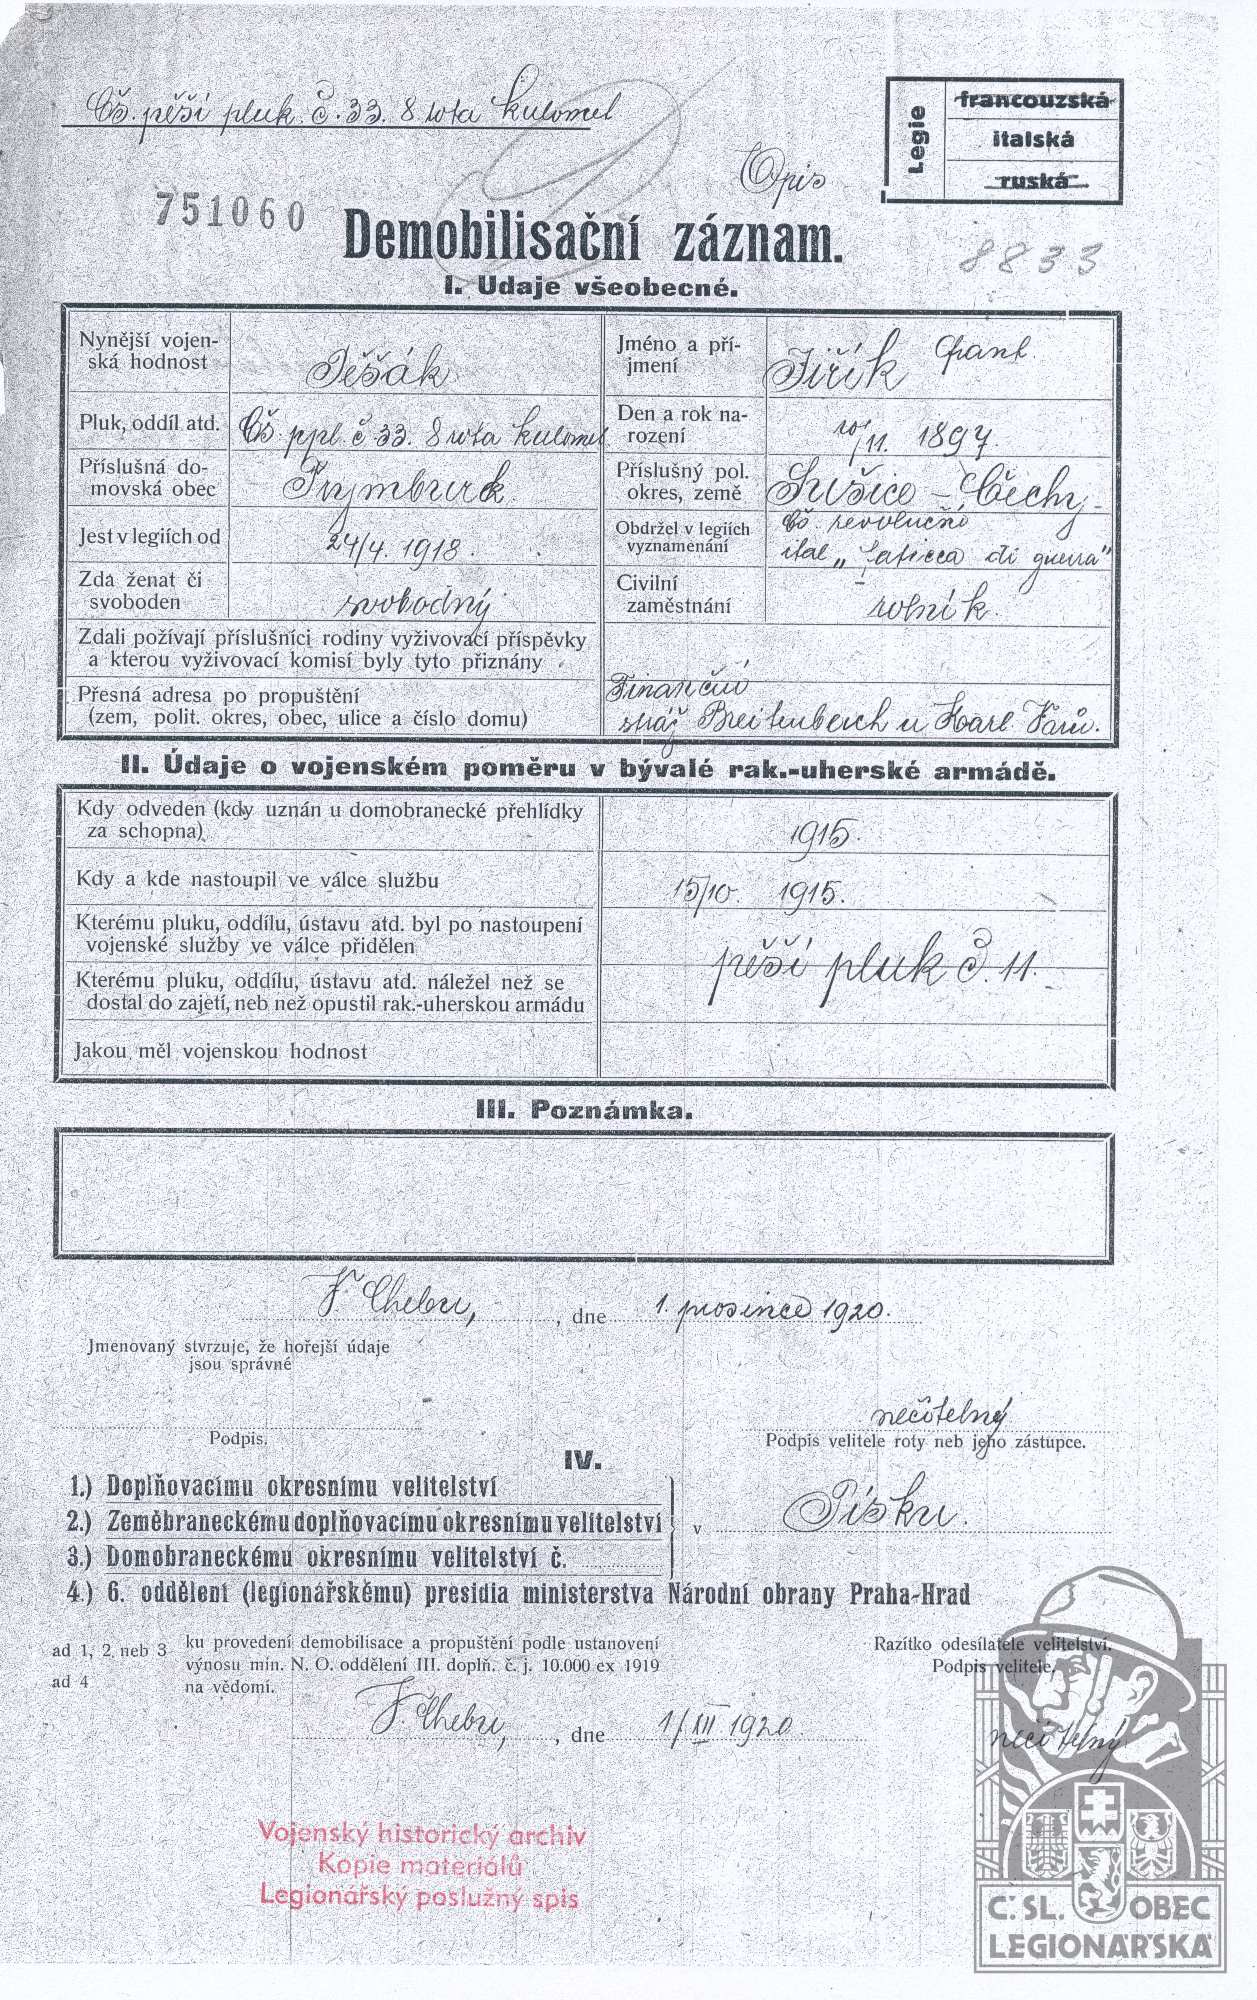 Čs. pěší pluk. č. 33. 8 rota kulomet
Opis
Legie
francouzská
italská
ruská
751060
Demobilisační záznam.
8833
I. Udaje všeobecné.
Nynější vojen-
ská hodnost
Pěšák
Jméno a pří-
jmení
Jiřík Frant
Pluk, oddíl atd.
Čs. ppl. č. 33. 8 rota kulomet
Den a rok na-
rození
10/11. 1897.
Příslušná do-
movská obec
Příslušný pol.
okres, země
Sušice - Čechy -
Jest v legiích od
24/4. 1918.
Obdržel v legiích
vyznamenání
čs. revoluční
ital „Faticca di guerra"
Zda ženat či
svoboden
svobodný
Civilní
zaměstnání
rolník.
Zdali požívají příslušníci rodiny vyživovací příspěvky
a kterou vyživovací komisí byly tyto přiznány
Přesná adresa po propuštění
(zem, polit. okres, obec, ulice a číslo domu)
Finanční
stráž Breitenbach u Karl. Varů.
II. Údaje o vojenském poměru v bývalé rak.-uherské armádě.
Kdy odveden (kdy uznán u domobranecké přehlídky
za schopna)
1915.
Kdy a kde nastoupil ve válce službu
15/10. 1915.
Kterému pluku, oddílu, ústavu atd. byl po nastoupení
vojenské služby ve válce přidělen
pěší pluk č. 11.
Kterému pluku, oddílu, ústavu atd. náležel než se
dostal do zajetí, neb než opustil rak.-uherskou armádu
Jakou měl vojenskou hodnost
III. Poznámka.
V Chebu, , dne 1. prosince 1920.
Jmenovaný stvrzuje, že hořejší údaje
jsou správné
Podpis.
nečitelný
Podpis velitele roty neb jeho zástupce.
IV.
1.) Doplňovacímu okresnímu velitelství
2.) Zeměbraneckému doplňovacímu okresnímu velitelství
3.) Domobraneckému okresnímu velitelství č.
v Písku.
4.) 6. oddělení (legionářskému) presidia ministerstva Národní obrany Praha-Hrad
ad 1, 2, neb 3 ku provedení demobilisace a propuštění podle ustanovení
výnosu min. N. O. oddělení III. doplň. č. j. 10.000 ex 1919
ad 4 na vědomí.
Razítko odesílatele velitelství.
Podpis velitele.
V Chebu, , dne 1/XII 1920.
nečitelný
Vojenský historický archiv
Kopie materiálů
Legionářský poslužný spis
Č. SL. OBEC
LEGIONÁŘSKÁ